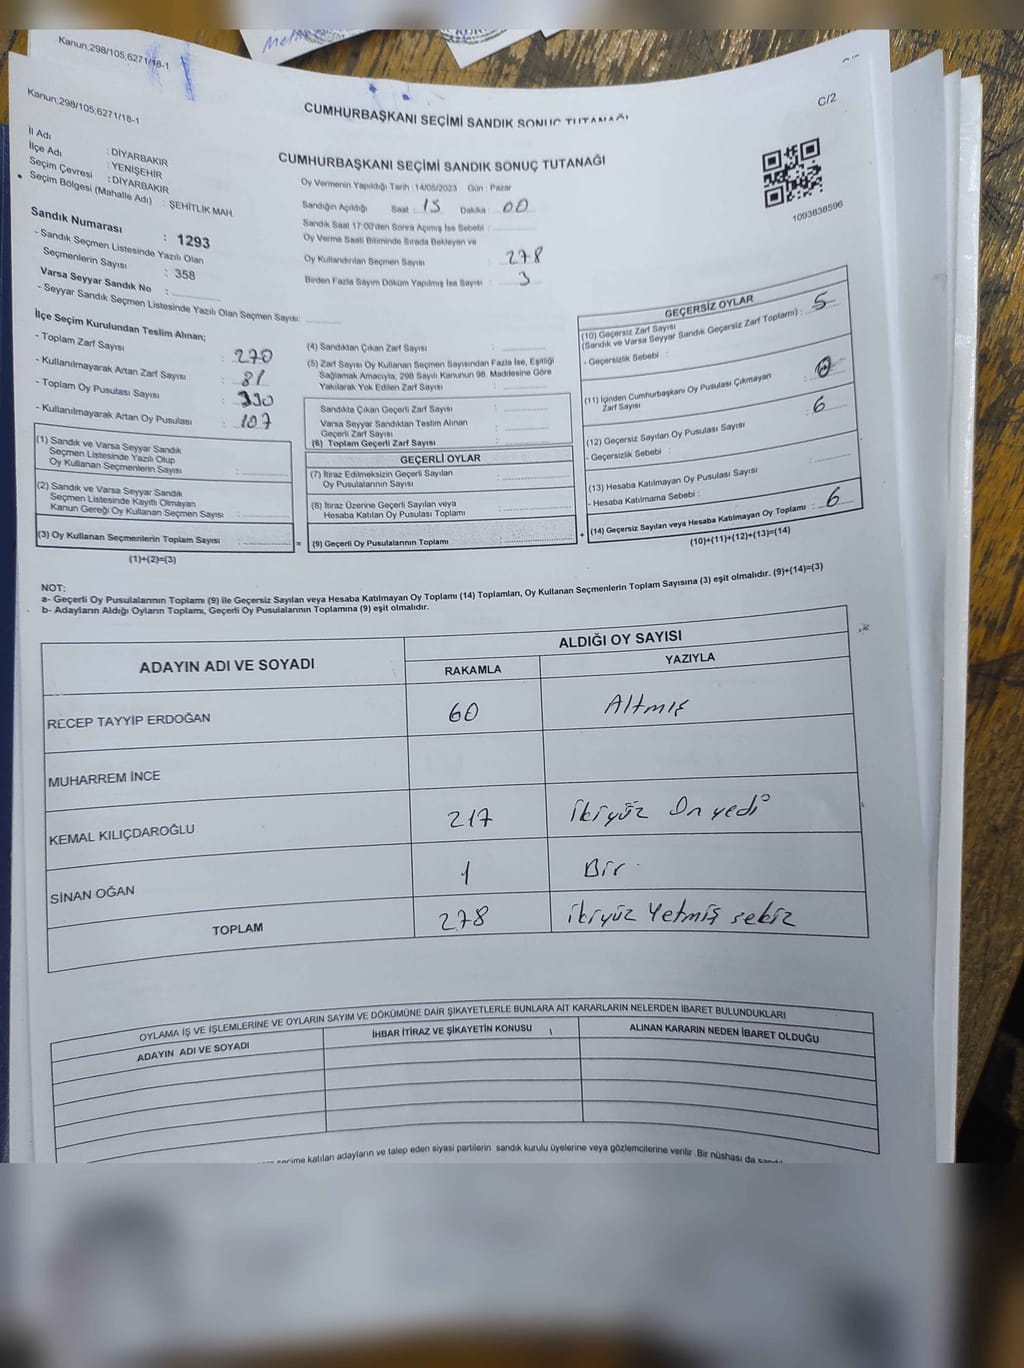 Kanun;298/105;6271/18-1
CUMHURBAŞKANI SEÇİMİ SANDIK SONUÇ TUTANAĞI
Kanun;298/105;6271/18-1
C/2
İl Adı : DİYARBAKIR
İlçe Adı : YENİŞEHİR
Seçim Çevresi : DİYARBAKIR
Seçim Bölgesi (Mahalle Adı) : ŞEHİTLİK MAH.
Sandık Numarası : 1293
- Sandık Seçmen Listesinde Yazılı Olan
Seçmenlerin Sayısı : 358
Varsa Seyyar Sandık No :
- Seyyar Sandık Seçmen Listesinde Yazılı Olan Seçmen Sayısı:
CUMHURBAŞKANI SEÇİMİ SANDIK SONUÇ TUTANAĞI
Oy Vermenin Yapıldığı Tarih : 14/05/2023 Gün : Pazar
Sandığın Açıldığı Saat 15 Dakika 00
Sandık Saat 17:00'den Sonra Açımış İse Sebebi :
Oy Verme Saati Bitiminde Sırada Bekleyen ve
Oy Kullandırılan Seçmen Sayısı : 278
Birden Fazla Sayım Döküm Yapılmış İse Sayısı : 3
1093838506
İlçe Seçim Kurulundan Teslim Alınan;
- Toplam Zarf Sayısı : 270
- Kullanılmayarak Artan Zarf Sayısı : 81
- Toplam Oy Pusulası Sayısı : 390
- Kullanılmayarak Artan Oy Pusulası : 107
(1) Sandık ve Varsa Seyyar Sandık
Seçmen Listesinde Yazılı Olup
Oy Kullanan Seçmenlerin Sayısı :
(2) Sandık ve Varsa Seyyar Sandık
Seçmen Listesinde Kayıtlı Olmayan
Kanun Gereği Oy Kullanan Seçmen Sayısı :
(3) Oy Kullanan Seçmenlerin Toplam Sayısı :
(1)+(2)=(3)
=
(4) Sandıktan Çıkan Zarf Sayısı :
(5) Zarf Sayısı Oy Kullanan Seçmen Sayısından Fazla İse, Eşitliği
Sağlamak Amacıyla, 298 Sayılı Kanunun 98. Maddesine Göre
Yakılarak Yok Edilen Zarf Sayısı :
Sandıkta Çıkan Geçerli Zarf Sayısı :
Varsa Seyyar Sandıktan Teslim Alınan
Geçerli Zarf Sayısı :
(6) Toplam Geçerli Zarf Sayısı :
GEÇERLİ OYLAR
(7) İtiraz Edilmeksizin Geçerli Sayılan
Oy Pusulalarının Sayısı :
(8) İtiraz Üzerine Geçerli Sayılan veya
Hesaba Katılan Oy Pusulası Toplamı :
(9) Geçerli Oy Pusulalarının Toplamı :
+
GEÇERSİZ OYLAR
(10) Geçersiz Zarf Sayısı
(Sandık ve Varsa Seyyar Sandık Geçersiz Zarf Toplamı) : 5
- Geçersizlik Sebebi :
(11) İçinden Cumhurbaşkanı Oy Pusulası Çıkmayan
Zarf Sayısı : 0
(12) Geçersiz Sayılan Oy Pusulası Sayısı : 6
- Geçersizlik Sebebi :
(13) Hesaba Katılmayan Oy Pusulası Sayısı :
- Hesaba Katılmama Sebebi :
(14) Geçersiz Sayılan veya Hesaba Katılmayan Oy Toplamı : 6
(10)+(11)+(12)+(13)=(14)
NOT:
a- Geçerli Oy Pusulalarının Toplamı (9) ile Geçersiz Sayılan veya Hesaba Katılmayan Oy Toplamı (14) Toplamları, Oy Kullanan Seçmenlerin Toplam Sayısına (3) eşit olmalıdır. (9)+(14)=(3)
b- Adayların Aldığı Oyların Toplamı, Geçerli Oy Pusulalarının Toplamına (9) eşit olmalıdır.
ADAYIN ADI VE SOYADI
ALDIĞI OY SAYISI
RAKAMLA YAZIYLA
RECEP TAYYİP ERDOĞAN 60 Altmış
MUHARREM İNCE
KEMAL KILIÇDAROĞLU 217 ikiyüz On yedi
SİNAN OĞAN 1 Bir
TOPLAM 278 ikiyüz Yetmiş sekiz
OYLAMA İŞ VE İŞLEMLERİNE VE OYLARIN SAYIM VE DÖKÜMÜNE DAİR ŞİKAYETLERLE BUNLARA AİT KARARLARIN NELERDEN İBARET BULUNDUKLARI
ADAYIN ADI VE SOYADI İHBAR İTİRAZ VE ŞİKAYETİN KONUSU ALINAN KARARIN NEDEN İBARET OLDUĞU
seçime katılan adayların ve talep eden siyasi partilerin sandık kurulu üyelerine veya gözlemcilerine verilir. Bir nüshası da